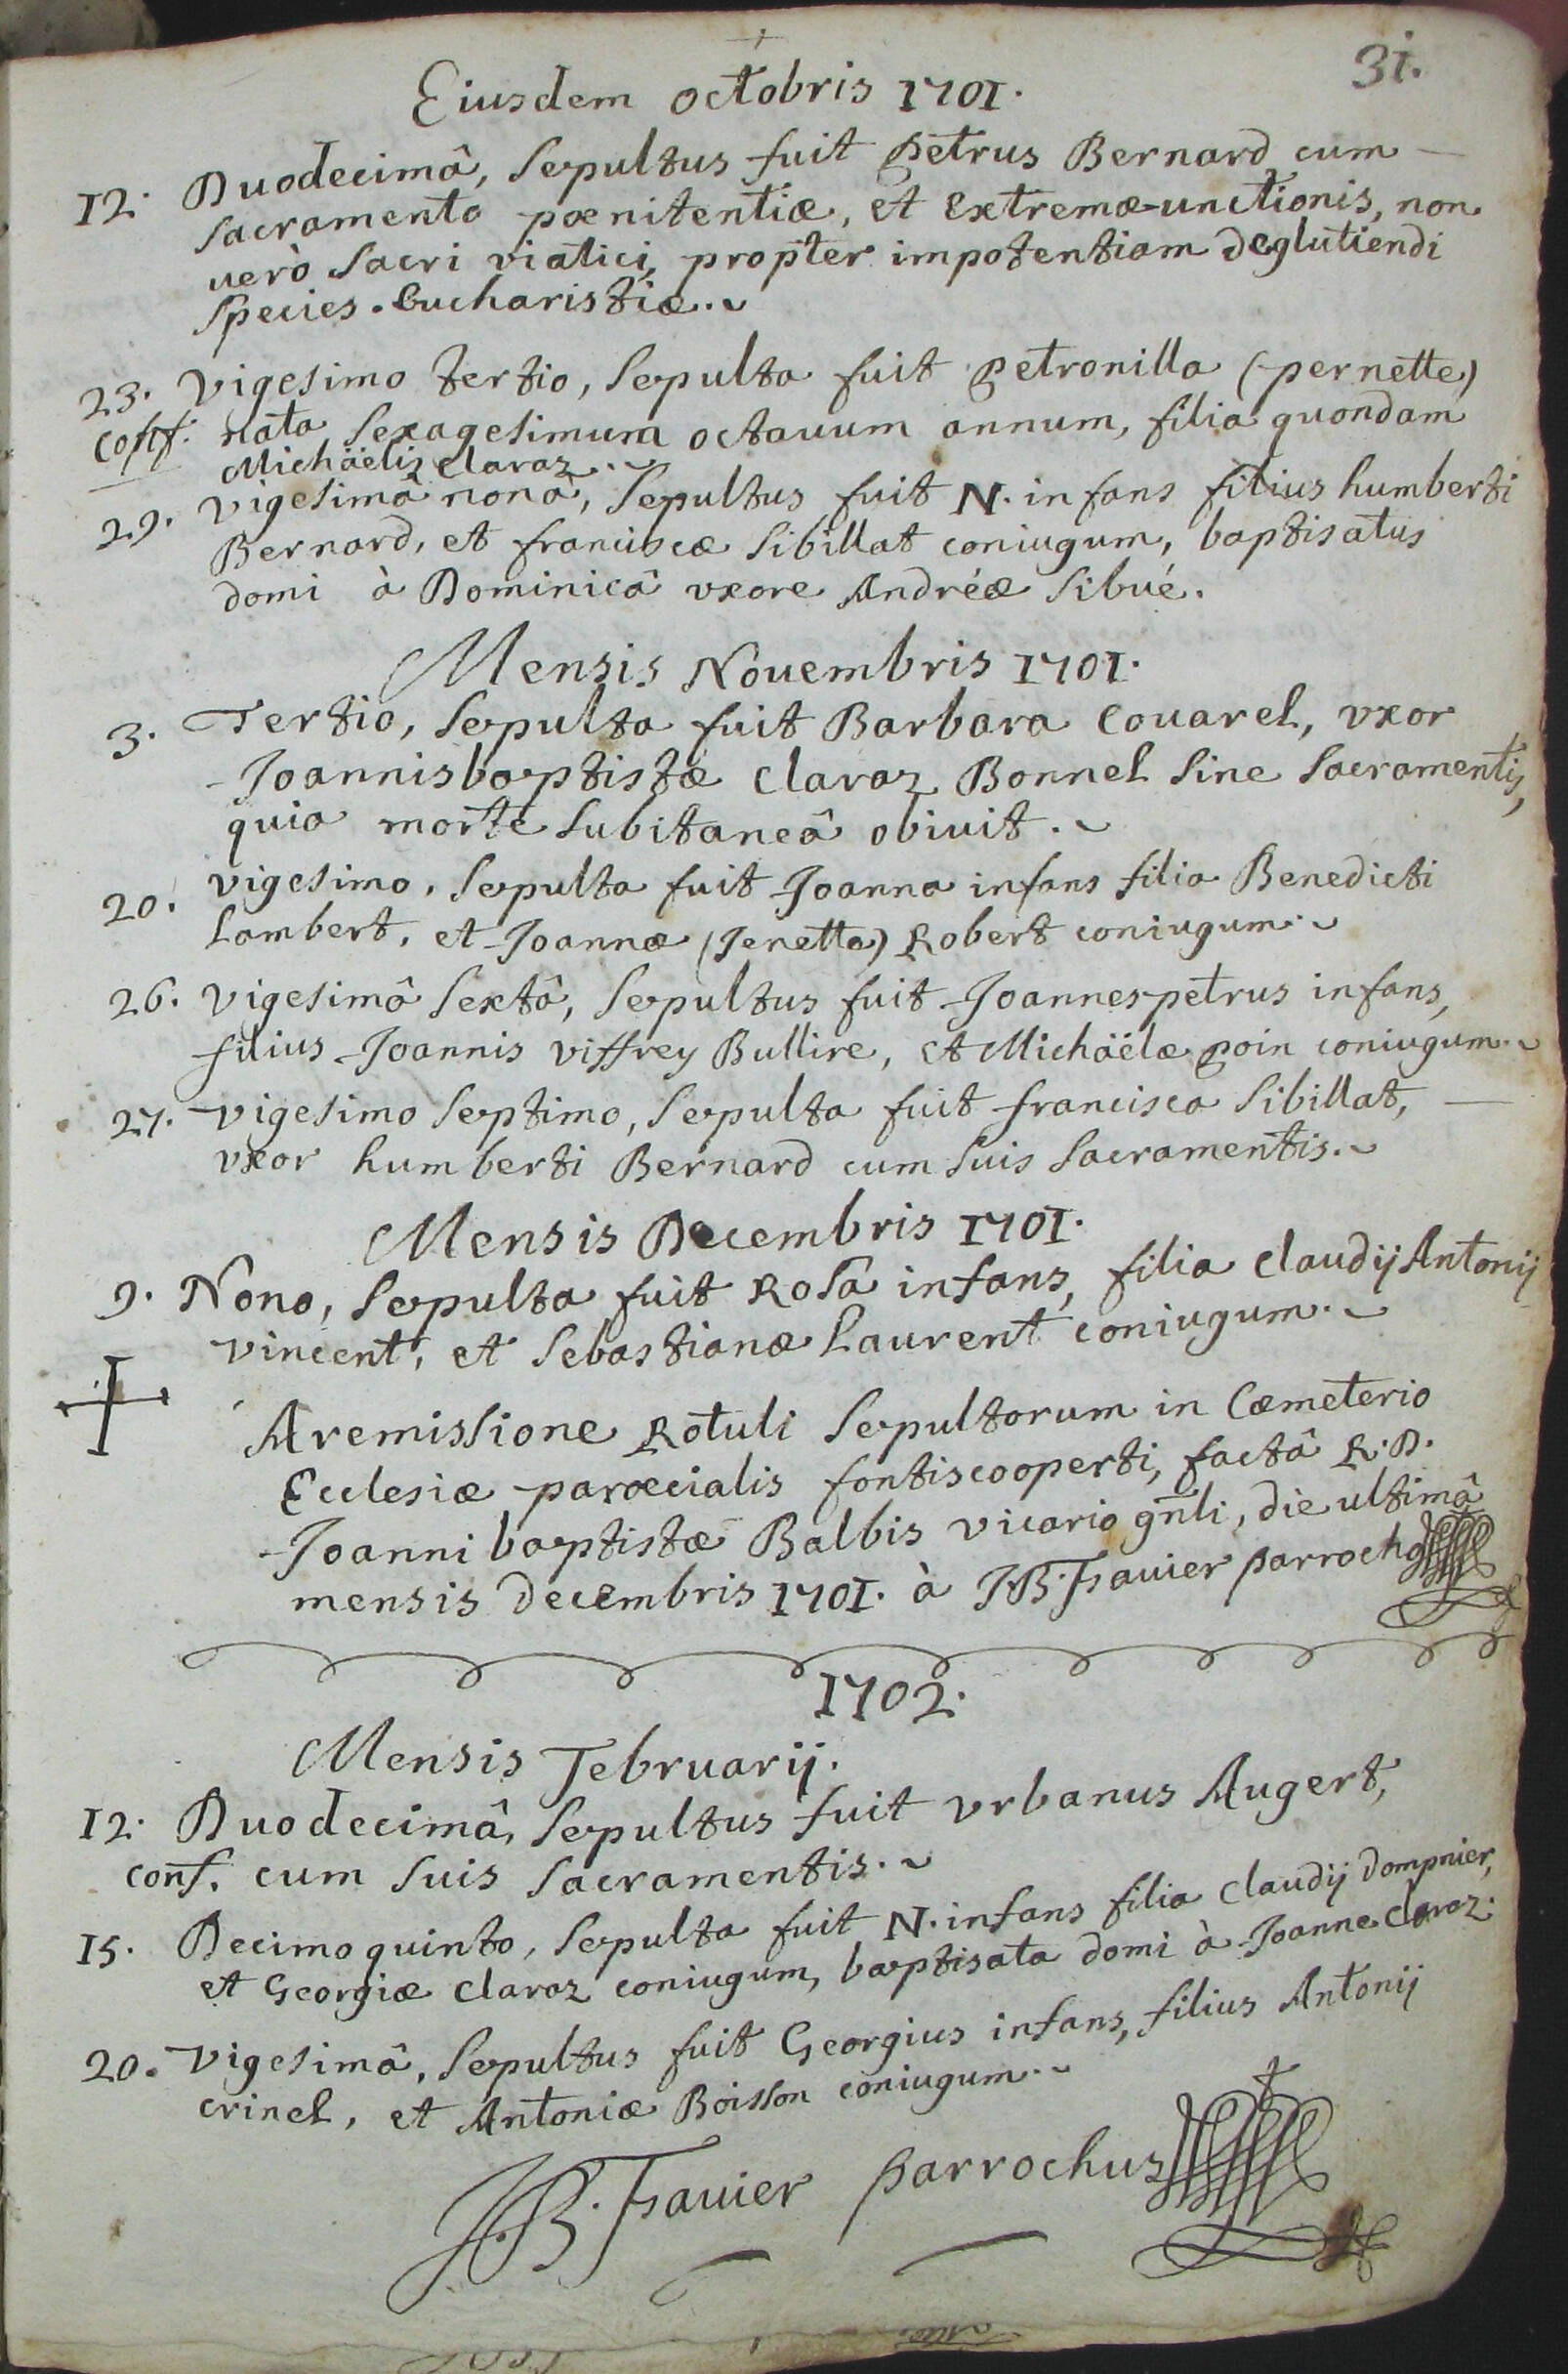 31.
Eiusdem octobris 1701.
12. Duodecimâ, Sepultus fuit Petrus Bernard cum
sacramento poenitentiæ, et Extremæ-unctionis, non
uerò Sacri viatici, propter impotentiam deglutiendi
Species Eucharistiæ.
23. Vigesimo tertio, Sepulta fuit Petronilla (pernette)
conf. nata Sexagesimum octauum annum, filia quondam
Michäelis Claraz.
29. Vigesimâ nonâ, Sepultus fuit N. infans filius humberti
Bernard, et franciscæ Sibillat coniugum, baptisatus
domi à Dominicâ vxore Andréæ Sibué.
Mensis Nouembris 1701.
3. Tertio, Sepulta fuit Barbara Couarel, vxor
Joannisbaptistæ Claraz Bonnel Sine Sacramentis,
quia morte Subitaneâ obiuit.
20. vigesimo, Sepulta fuit Joanna infans filia Benedicti
Lambert, et Joannæ (Jenetta) Robert coniugum.
26. vigesimâ Sextâ, Sepultus fuit Joannespetrus infans,
filius Joannis viffrey Bullire, et Michäelæ poin coniugum.
27. vigesimo Septimo, Sepulta fuit francisca Sibillat,
vxor humberti Bernard cum Suis Sacramentis.
Mensis Decembris 1701.
9. Nono, Sepulta fuit Rosa infans, filia Claudij Antonij
vincent, et Sebastianæ Laurent coniugum.
A remissione Rotuli Sepultorum in Cæmeterio
Ecclesiæ paroecialis fontiscooperti, factâ R.D.
Joanni baptistæ Balbis vicario gn̄li, die ultimâ
mensis decembris 1701. à JB. Favier parrocho
1702.
Mensis Februarij.
12. Duodecimâ, Sepultus fuit vrbanus Augert,
conf. cum Suis Sacramentis.
15. Decimo quinto, Sepulta fuit N. infans filia Claudij Dompnier,
et Georgiæ Claraz coniugum, baptisata domi à Joanne Claraz.
20. Vigesimâ, Sepultus fuit Georgius infans, filius Antonij
crinel, et Antoniæ Boisson coniugum.
JB. Favier parrochus